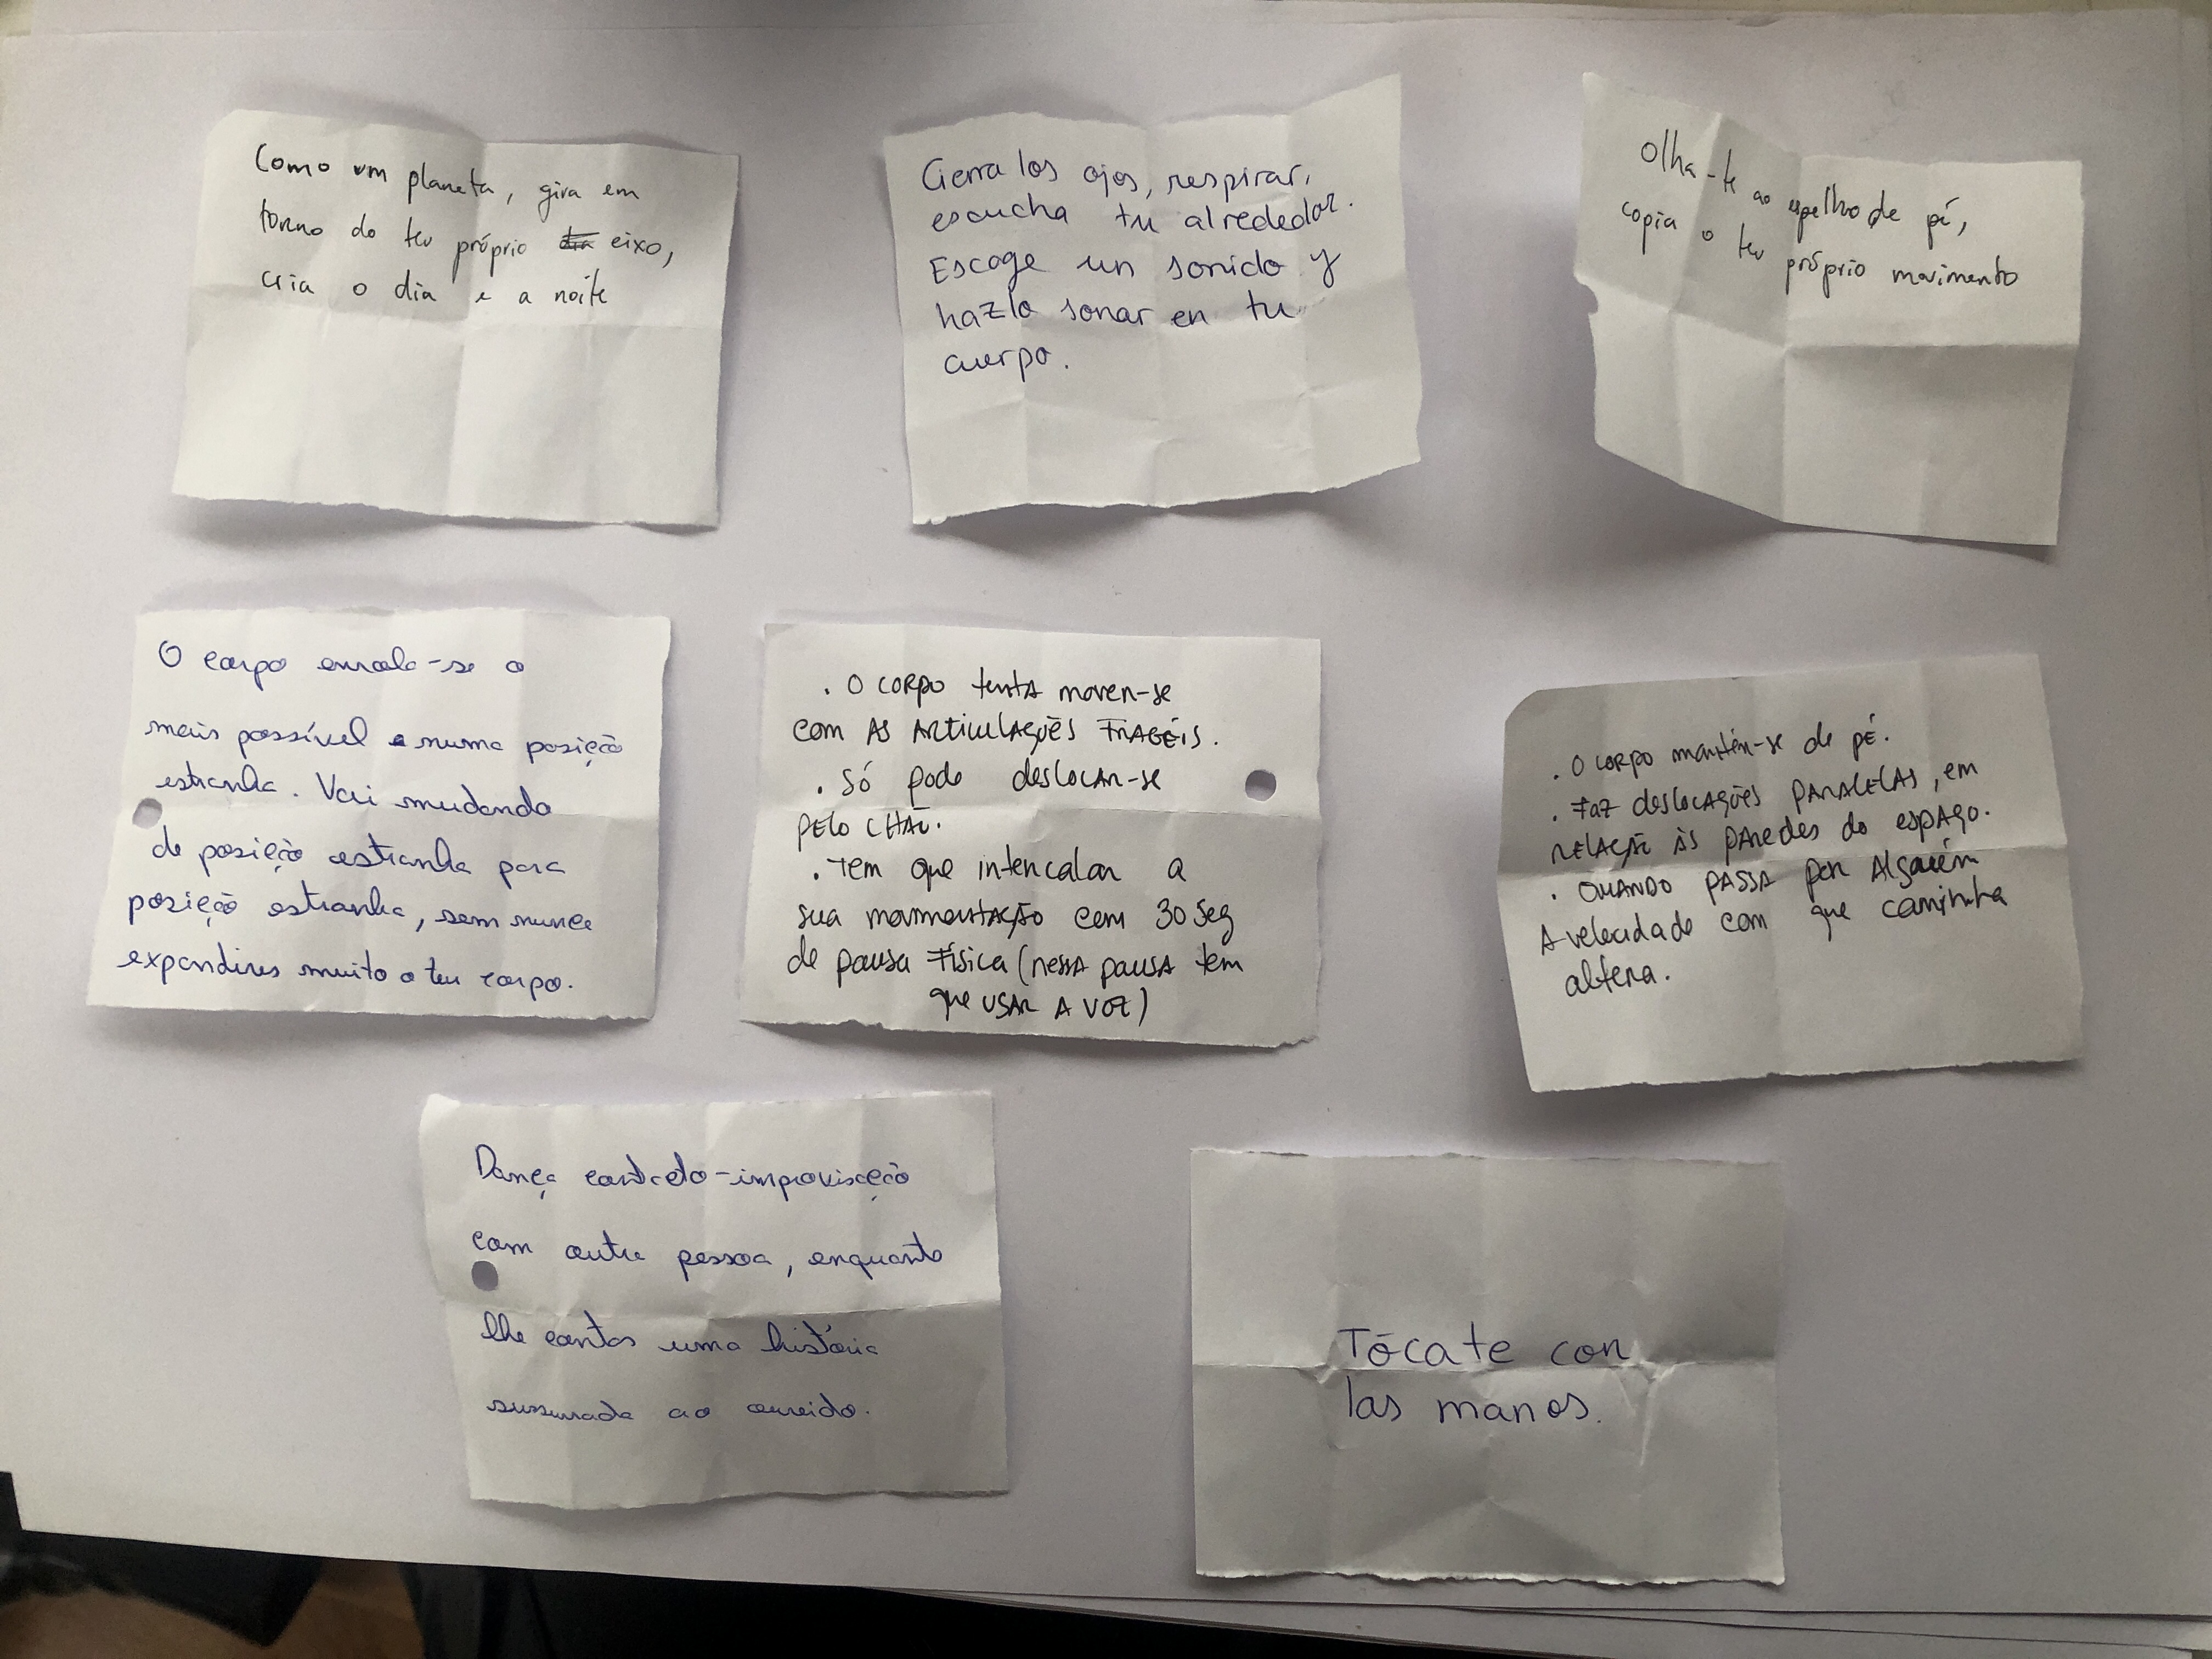 Como um planeta, gira em
torno do teu próprio dia eixo,
cria o dia e a noite
Cierra los ojos, respirar,
escucha tu alrededor.
Escoge un sonido y
hazlo sonar en tu
cuerpo.
Olha-te ao espelho de pé,
copia o teu próprio movimento
O corpo enrola-se o
mais possível e numa posição
estranha. Vai mudando
de posição estranha para
posição estranha, sem nunca
expandires muito o teu corpo.
. O CORPO tenta mover-se
com AS ARTICULAÇÕES FRAGÉIS.
. Só pode deslocar-se
PELO CHÃO.
. Tem que intercalar a
sua movimentação com 30 seg
de pausa Física (nessa pausa tem
que USAR A VOZ)
. O CORPO mantém-se de PÉ.
. Faz deslocações PARALELAS, em
RELAÇÃO às paredes do espaço.
. QUANDO PASSA por Alguém
A velocidade com que caminha
altera.
Dança contacto-improvisação
com outra pessoa, enquanto
lhe contas uma história
sussurrada ao ouvido.
Tócate con
las manos.